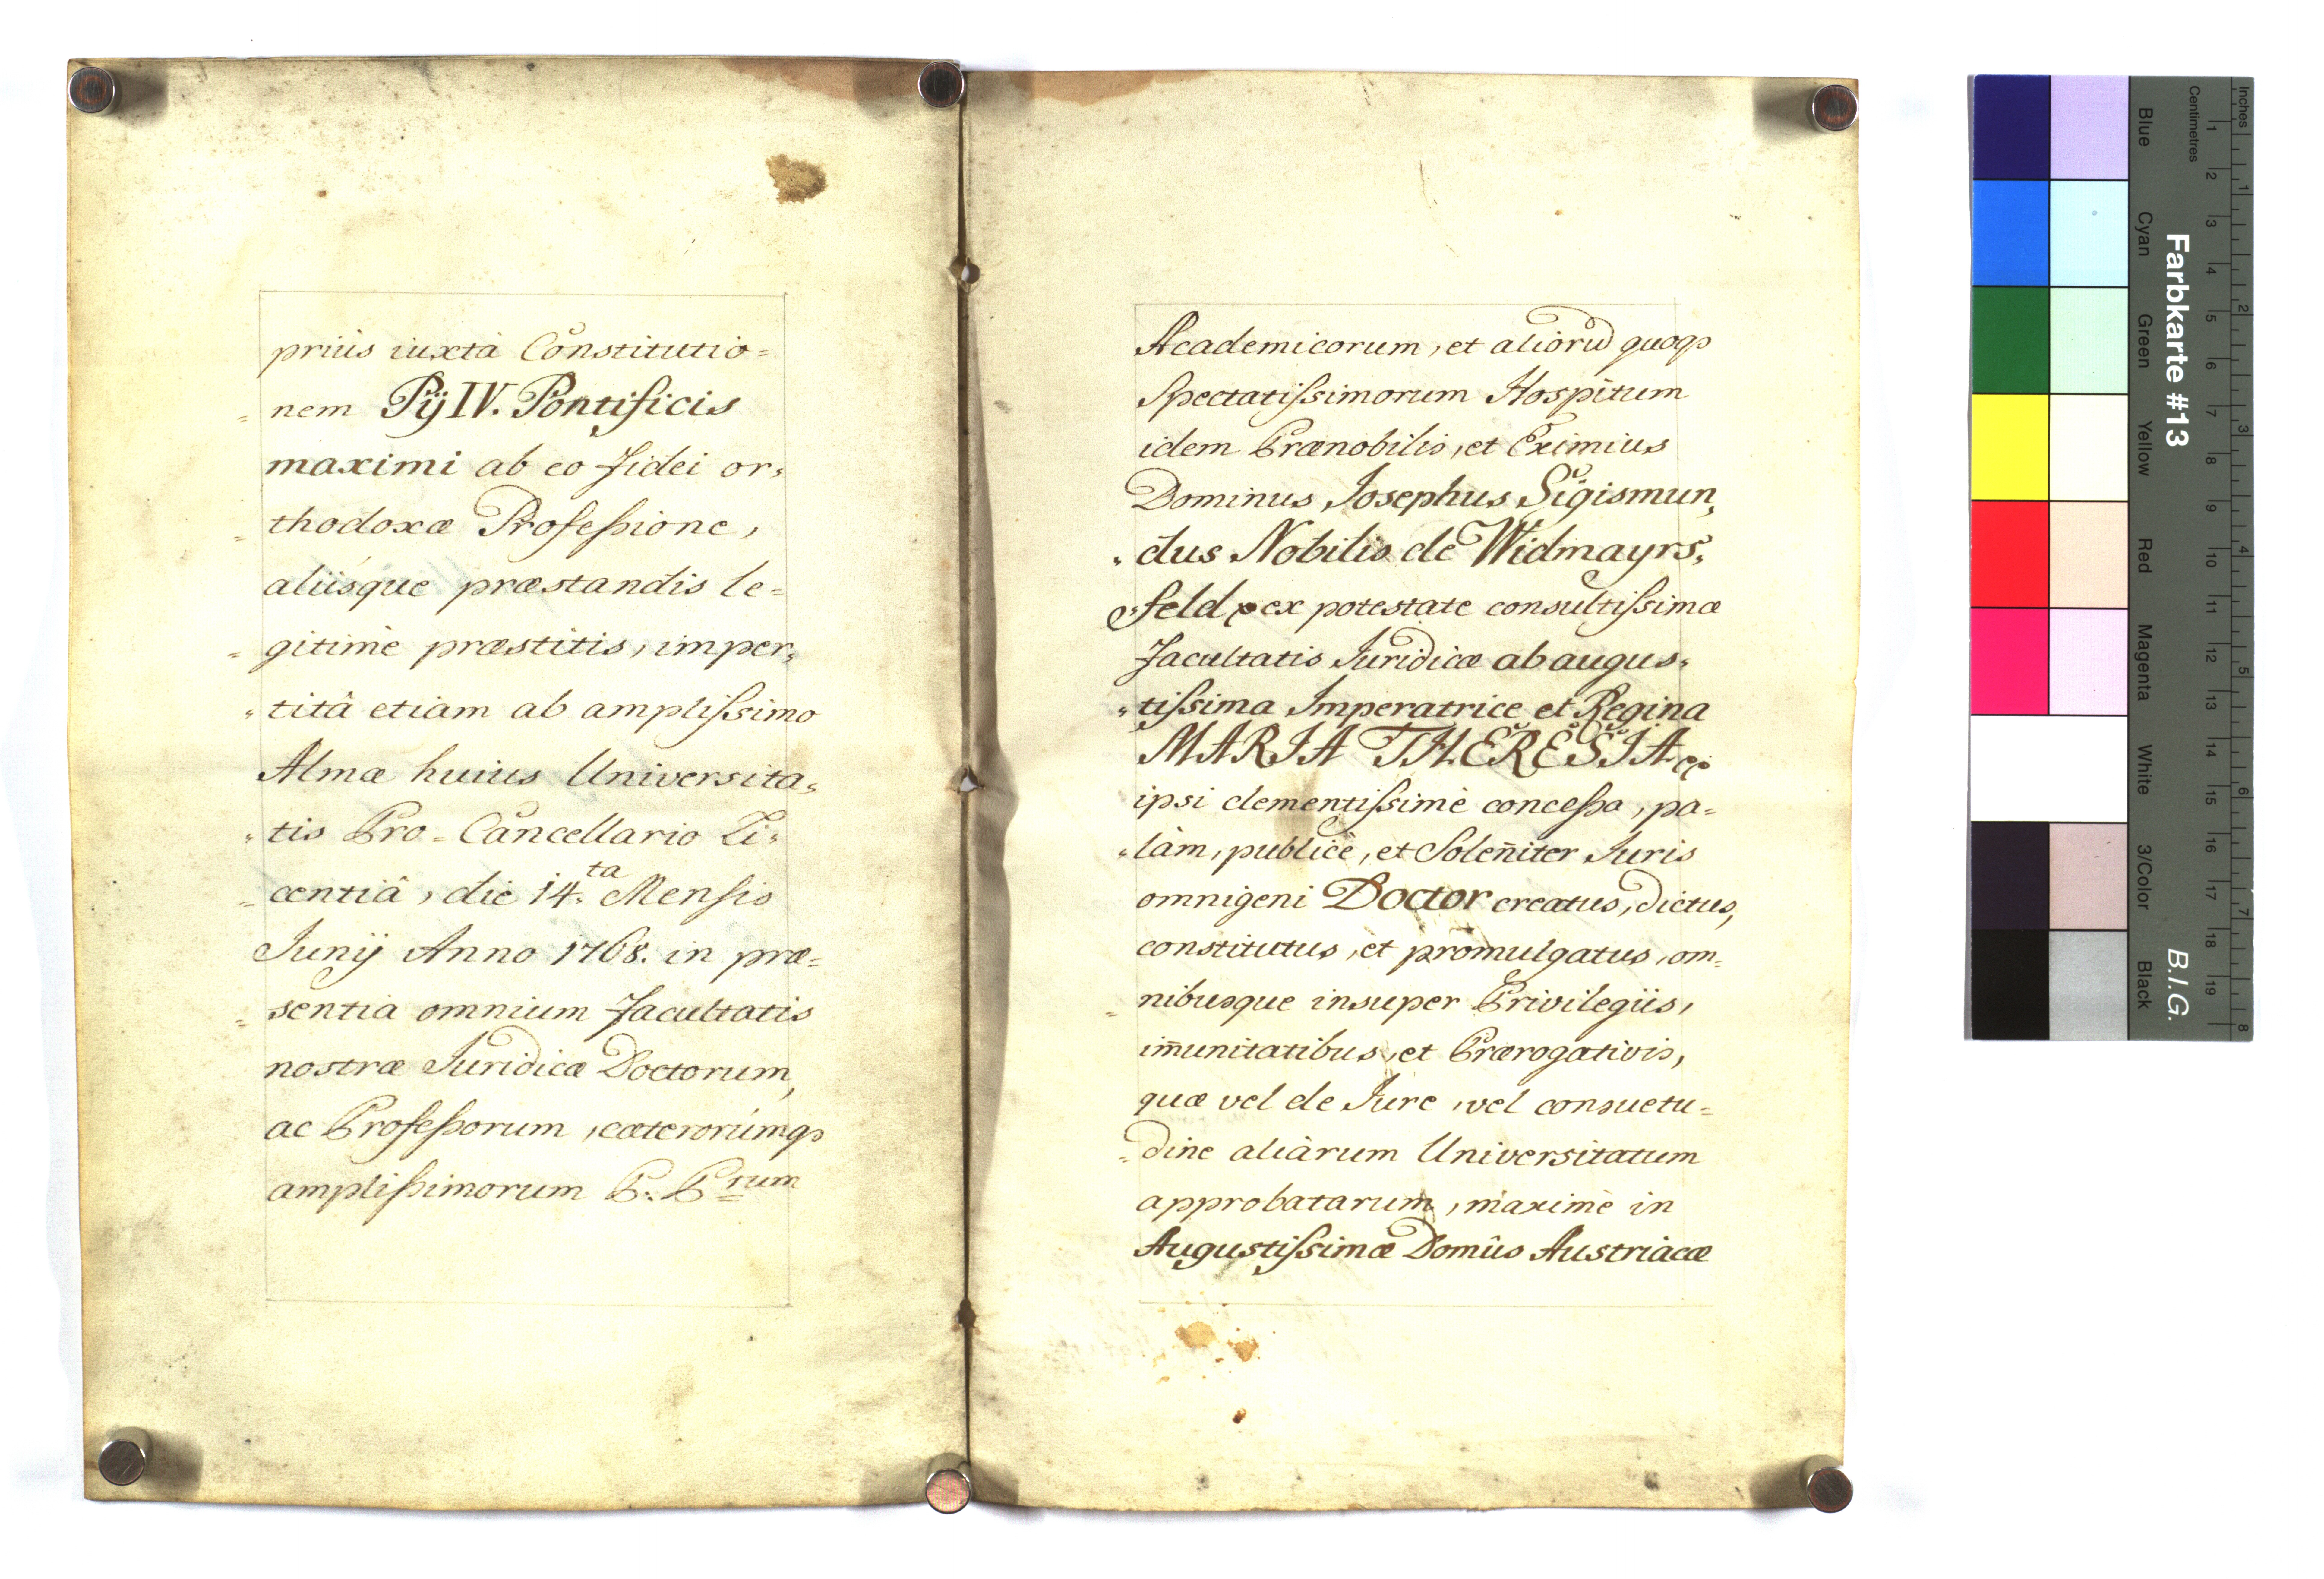 priùs iuxtà Constitutio=
= nem Pij IV. Pontificis
maximi ab eo fidei or=
= thodoxæ Professione,
aliisque præstandis le=
= gitimè præstitis, imper=
= titâ etiam ab amplissimo
Almæ huius Universita=
= tis Pro-Cancellario Li=
= centiâ, die 14.ta Mensis
Junij Anno 1768. in præ=
= sentia omnium Facultatis
nostræ Juridicæ Doctorum,
ac Professorum, cæterorúmq
amplissimorum P. P.rum
Academicorum, et aliorū quoq
Spectatissimorum Hospitum
idem Prænobilis, et Eximius
Dominus Josephus Sigismun=
= dus Nobilis de Widmayrs=
= feld ex potestate consultissimæ
Facultatis Juridicæ ab augus=
= tissima Imperatrice et Regina
MARIA THERESIA
ipsi clementissimè concessa, pa=
= làm, publicè, et Soleñiter Juris
omnigeni Doctor creatus, dictus,
constitutus, et promulgatus, om=
= nibusque insuper Privilegiis,
im̄unitatibus, et Prærogativis,
quæ vel de Jure, vel consuetu=
= dine aliàrum Universitatum
approbatarum, maximè in
Augustissimæ Domûs Austriàcæ
Inches
Centimetres
1 2 3 4 5 6 7 8 9 10 11 12 13 14 15 16 17 18 19
1 2 3 4 5 6 7 8
Blue Cyan Green Yellow Red Magenta White 3/Color Black
Farbkarte #13
B.I.G.